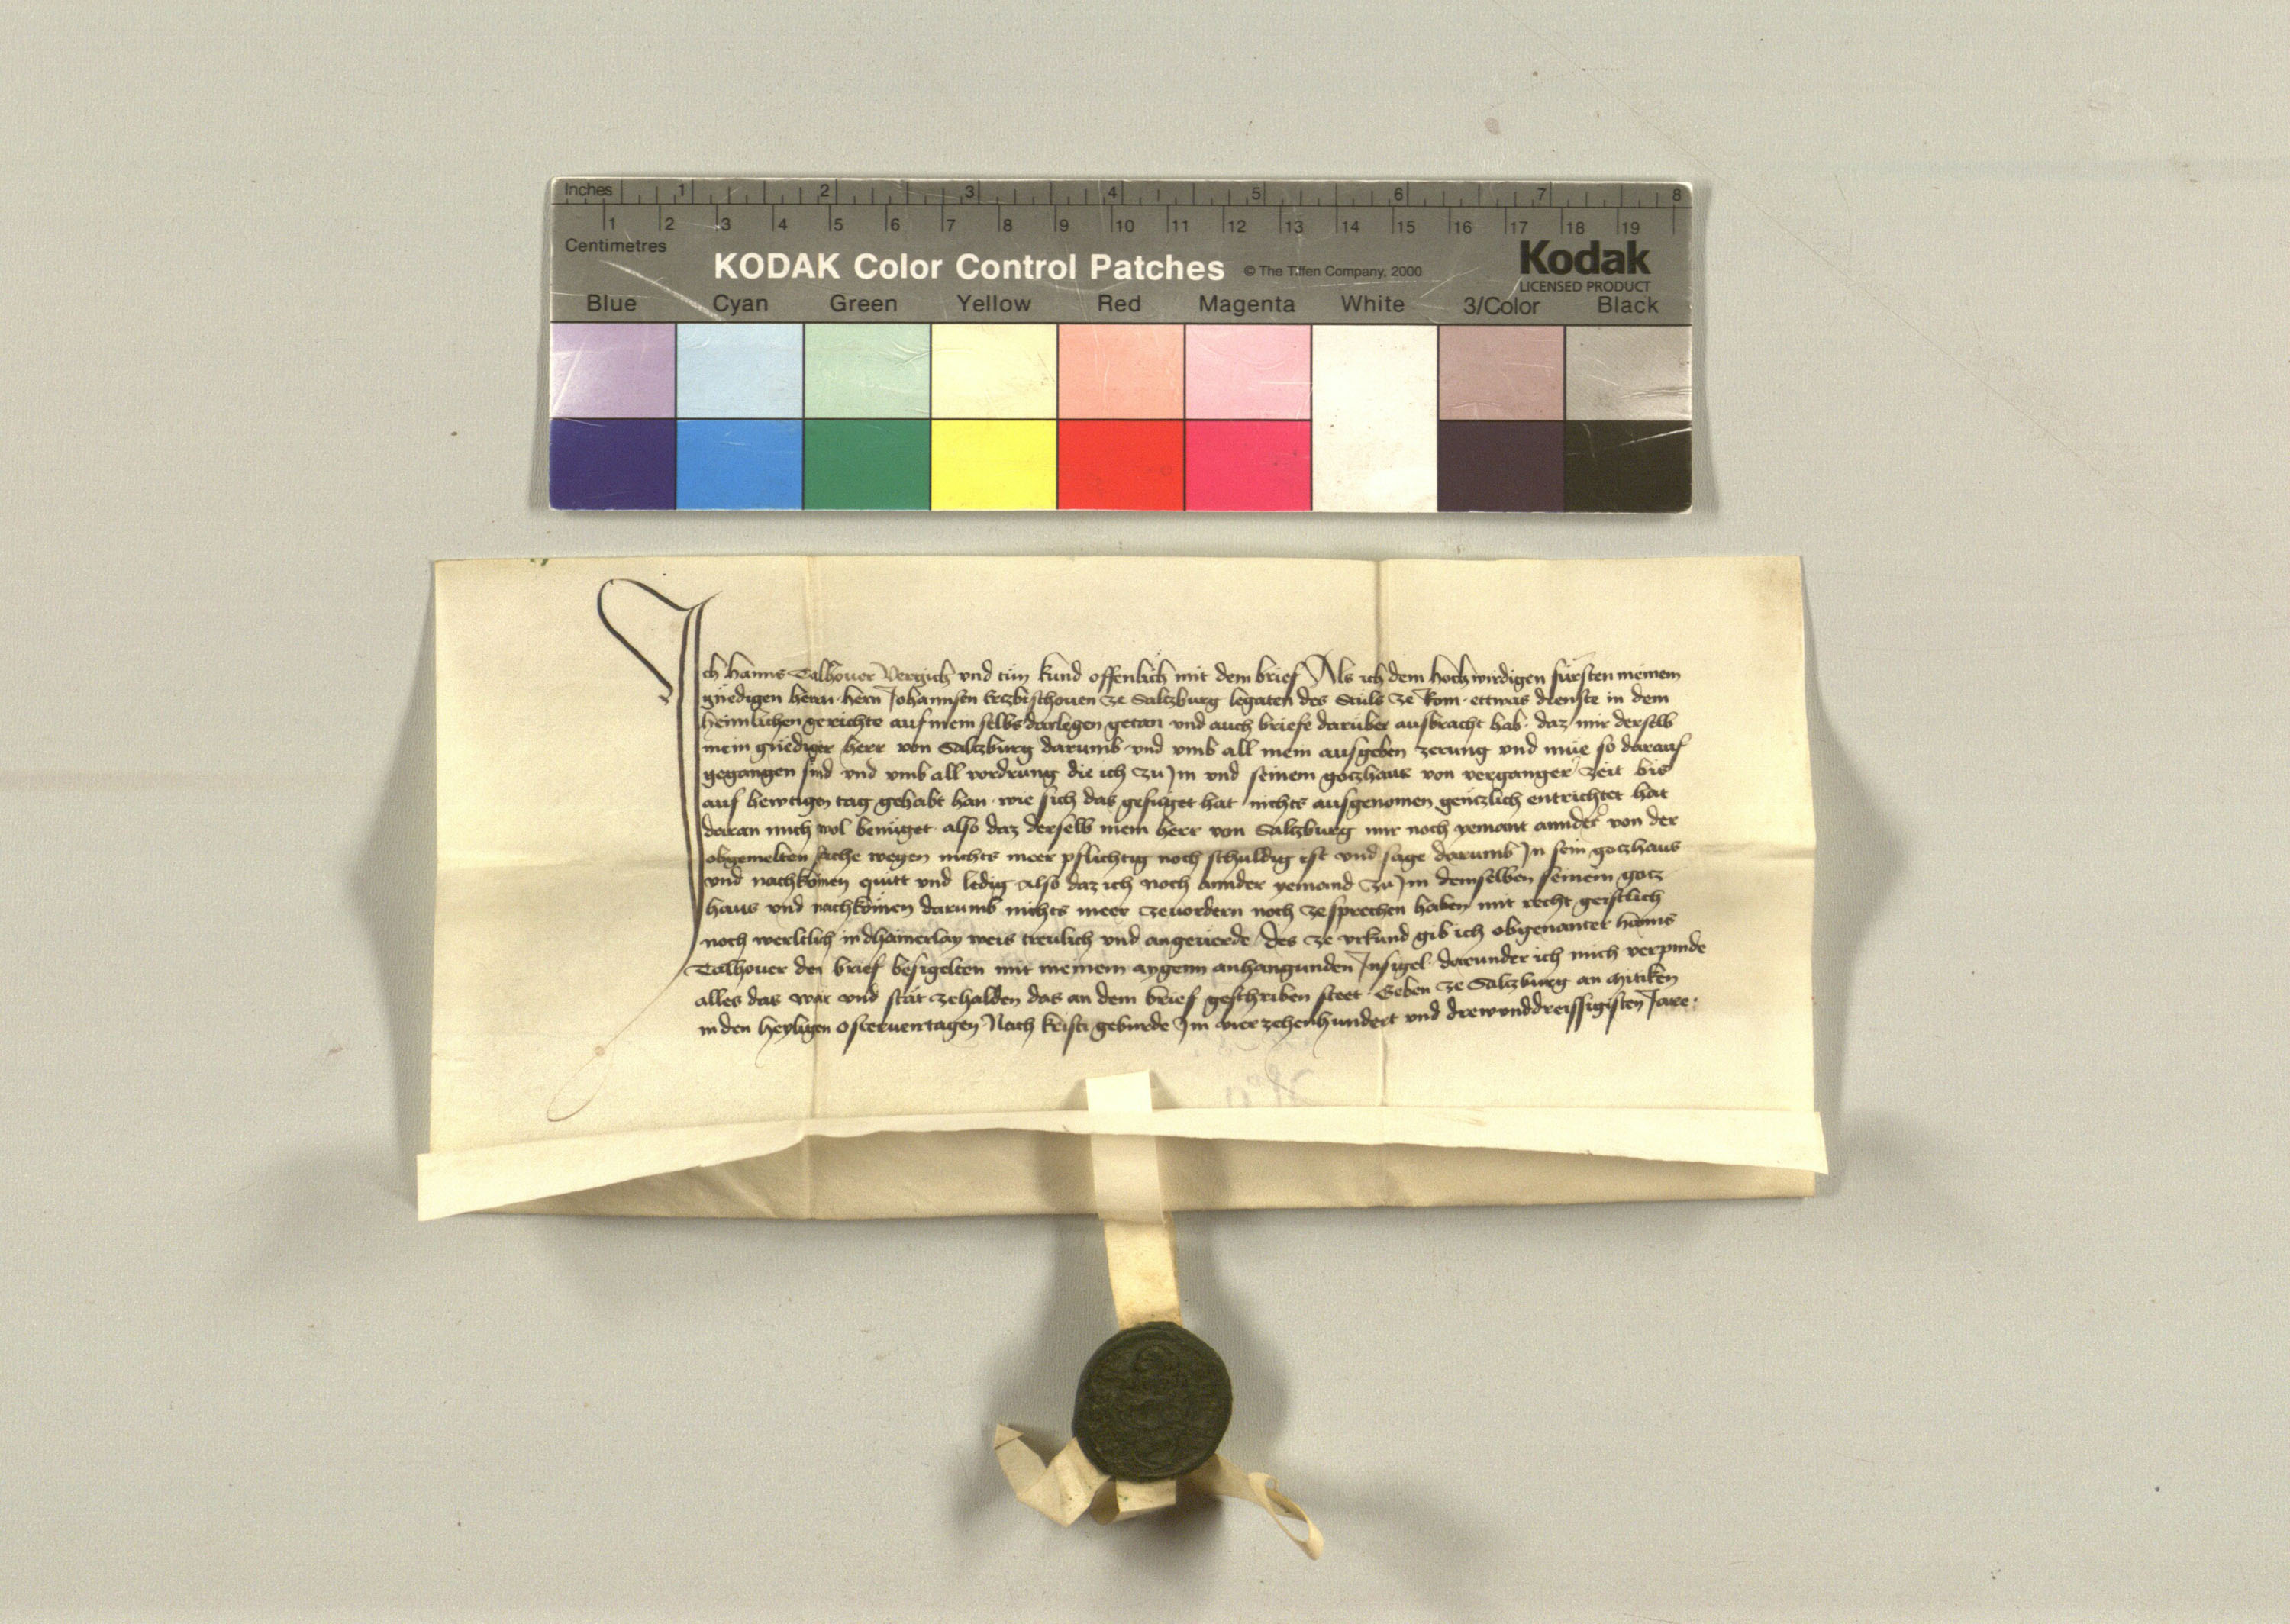 Inches 1 2 3 4 5 6 7 8
1 2 3 4 5 6 7 8 9 10 11 12 13 14 15 16 17 18 19
Centimetres
KODAK Color Control Patches © The Tiffen Company, 2000 Kodak
LICENSED PRODUCT
Blue Cyan Green Yellow Red Magenta White 3/Color Black
Ich Hanns Talhouer Vergich und tůn kund offenlich mit dem brief Als ich dem hochwirdigen fürsten meinem
gnedigen herrn hern Johannsen Erzbischouen ze Saltzburg legaten des Stuls ze Rom ettwas dienste in dem
heimlichen gerichte auf mein selbs darlegen getan und auch briefe darüber ausbracht hab daz mir derselb
mein gnediger herr von Saltzburg darumb und umb all mein ausgeben zerung und müe so darauf
gegangen sind und umb all vordrung die ich zu Im und seinem gotzhaus von verganger zeit bis
auf hewtigen tag gehabt han wie sich das gefüget hat nichts ausgenomen gentzlich entrichtet hat
daran mich wol benüget also daz derselb mein herr von Saltzburg mir noch yemant annder von der
obgemelten sache wegen nichts meer pflichtig noch schuldig ist und sage darumb In sein gotzhaus
und nachkomen quitt und ledig also daz ich noch annder yemand zu Im demselben seinem gotz
haus und nachkömen darumb nichts meer zeuordern noch zesprechen haben mit recht geistlich
noch werltlich in dhainerlay weis treulich und angeuerde des ze urkund gib ich obgenanter Hanns
Talhouer den brief besigelten mit meinem aygenn anhangunden Insigel darunder ich mich verpinde
alles das war und stät zehalden das an dem brief geschriben steet Geben ze Saltzburg an Mitiken
in den heyligen osterueirtagen Nach Kristi geburde Im vierzehenhundert und drewunddreissigisten Jare